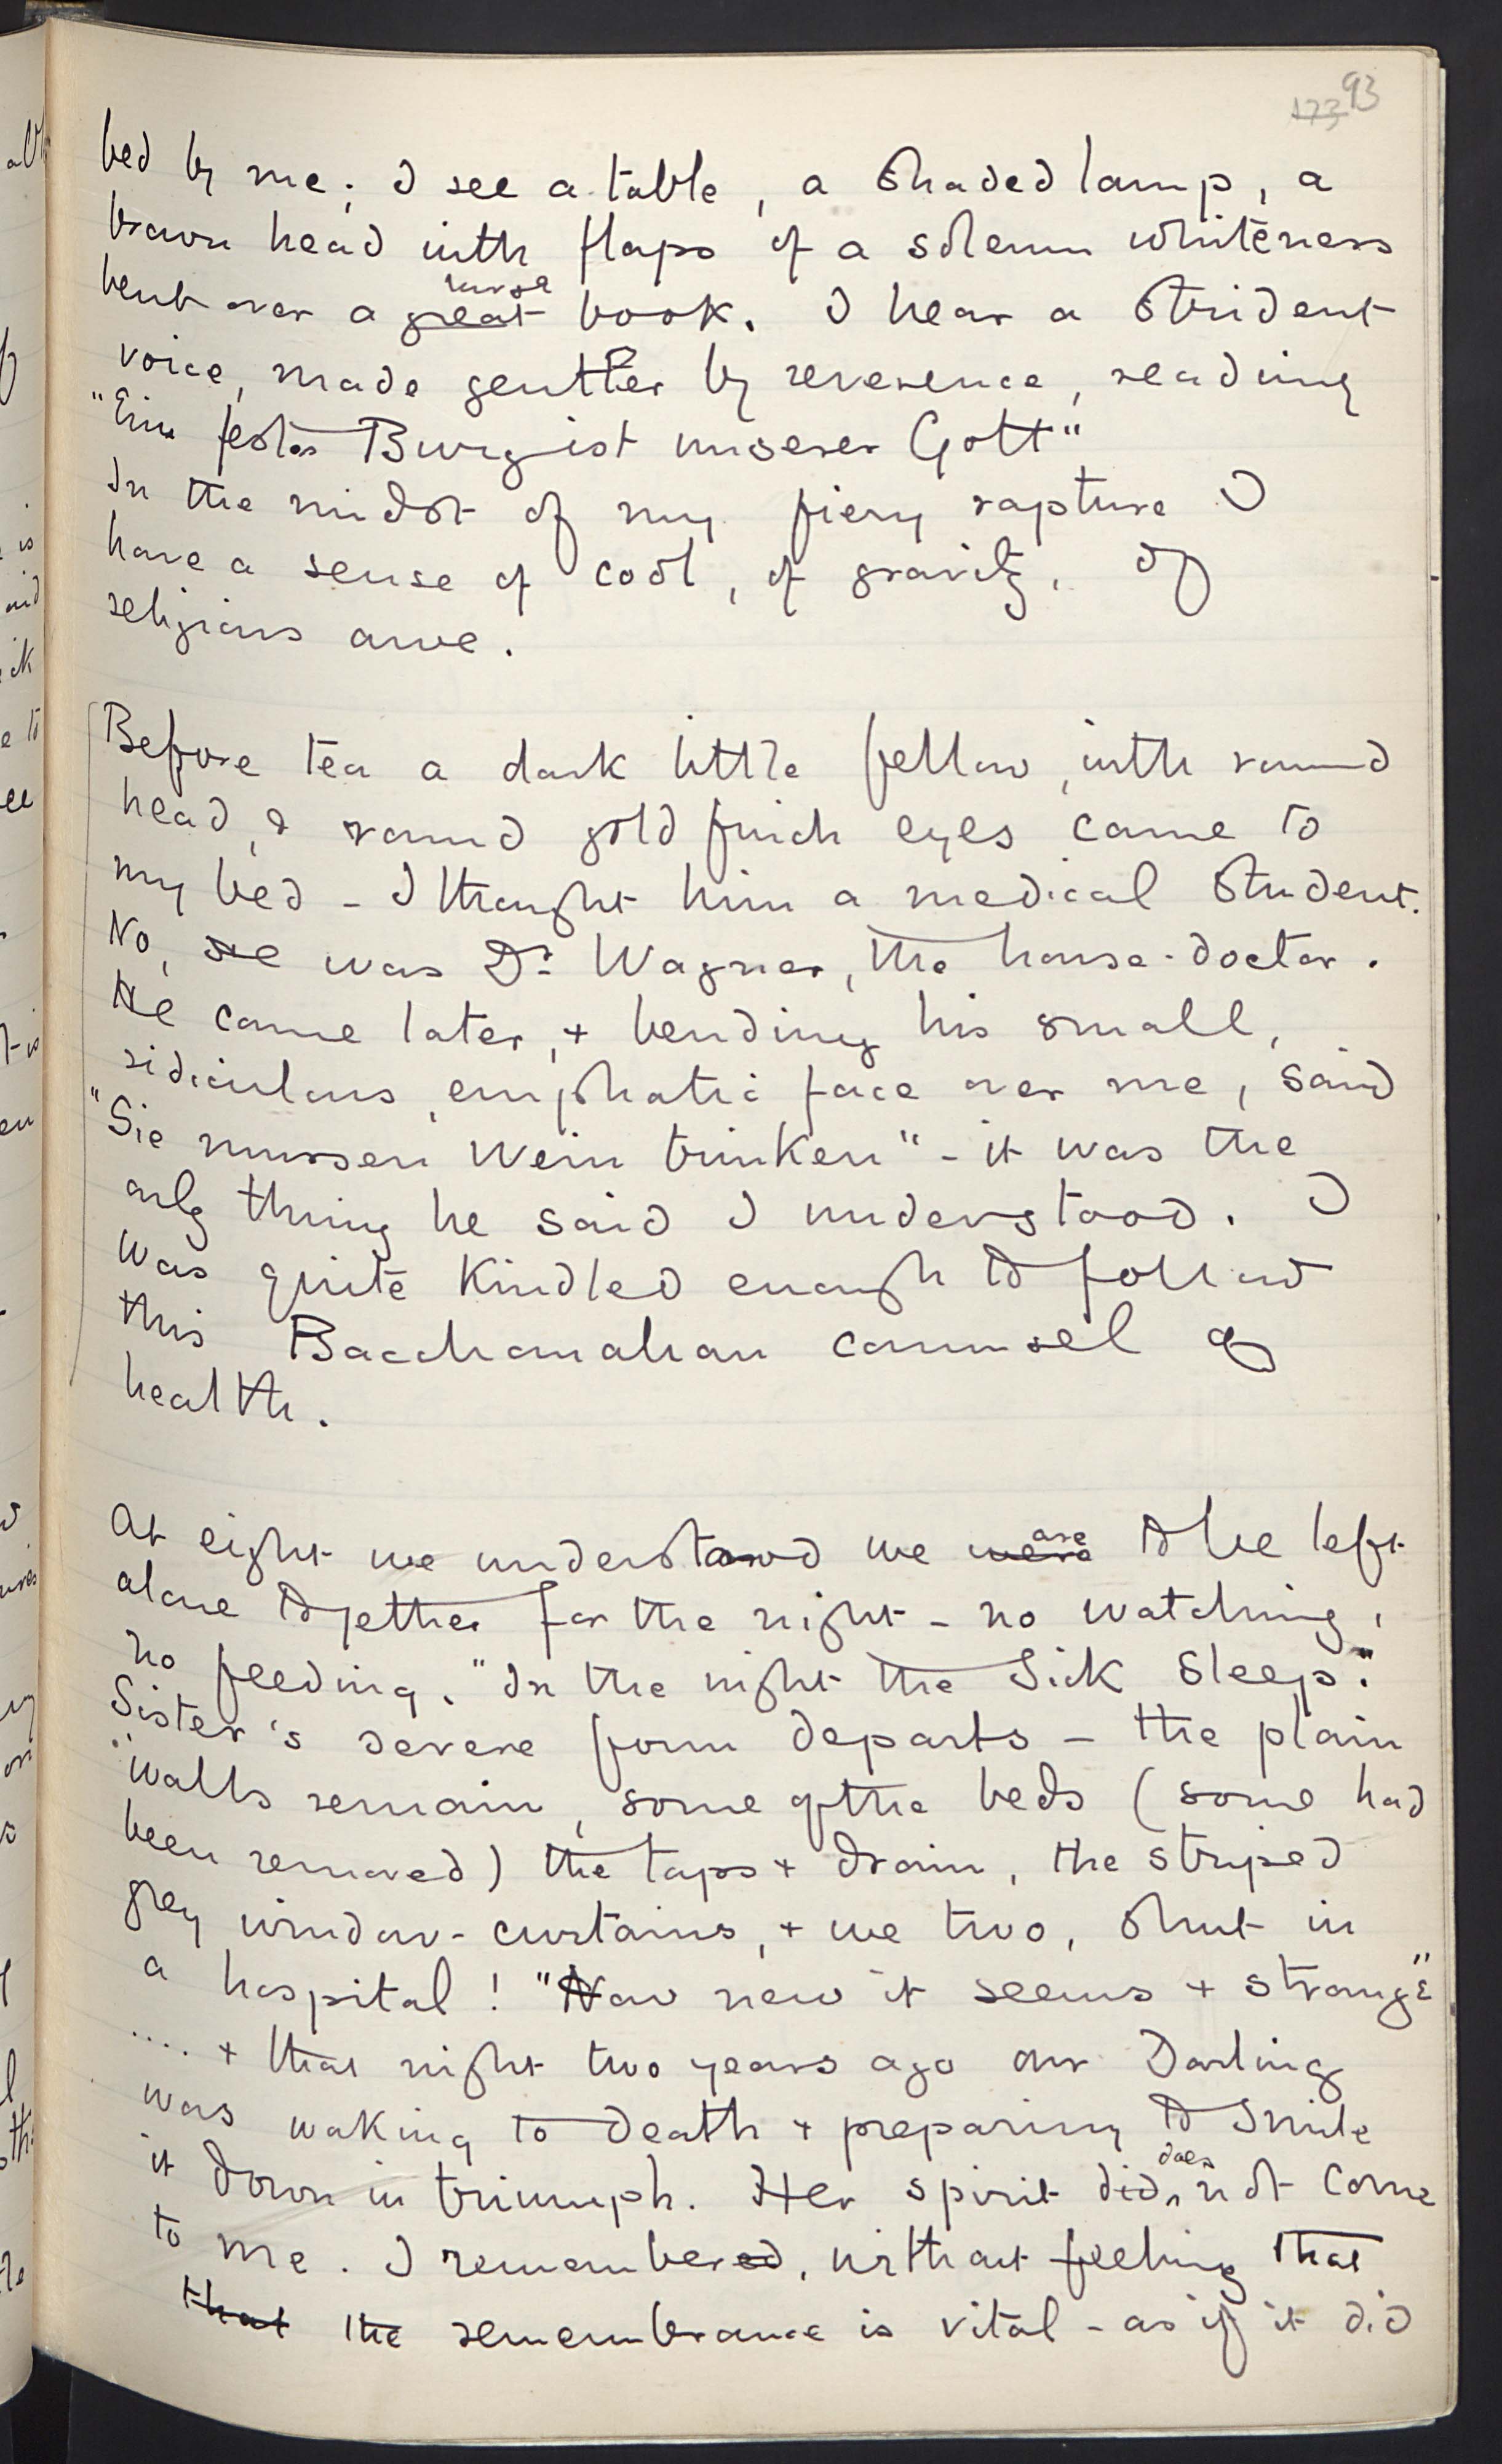 173 93
bed by me; I see a table, a shaded lamp, a
brown head with flaps of a solemn whiteness
bent over a great large book. I hear a strident
voice, made gentler by reverence, reading
"Eine fester Burg ist unserer Gott"
In the midst of my fiery rapture I
have a sense of cool, of gravity, of
religious awe.
Before tea a dark little fellow, with round
head, & round goldfinch eyes came to
my bed - I thought him a medical student.
No, he was Dr Wagner, the house-doctor.
He came later, + bending his small,
ridiculous, emphatic face over me, said
"Sie mussen Wein trinken" - it was the
only thing he said I understood. I
was quite kindled enough to follow
this Bacchanalian counsel of
health.
At eight we understand we were are to be left
alone together for the night - no watching,
no feeding. "In the night the Sick Sleep."
Sister's severe form departs - the plain
walls remain, some of the beds (some had
been removed) the taps + drain, the striped
grey window-curtains, + we two, shut in
a hospital! "How new it seems + strange"
.... + that night two years ago our Darling
was waking to death + preparing to smile
it down in triumph. Her spirit did does not come
to me. I remembered, without feeling that
that the remembrance is vital - as if it did